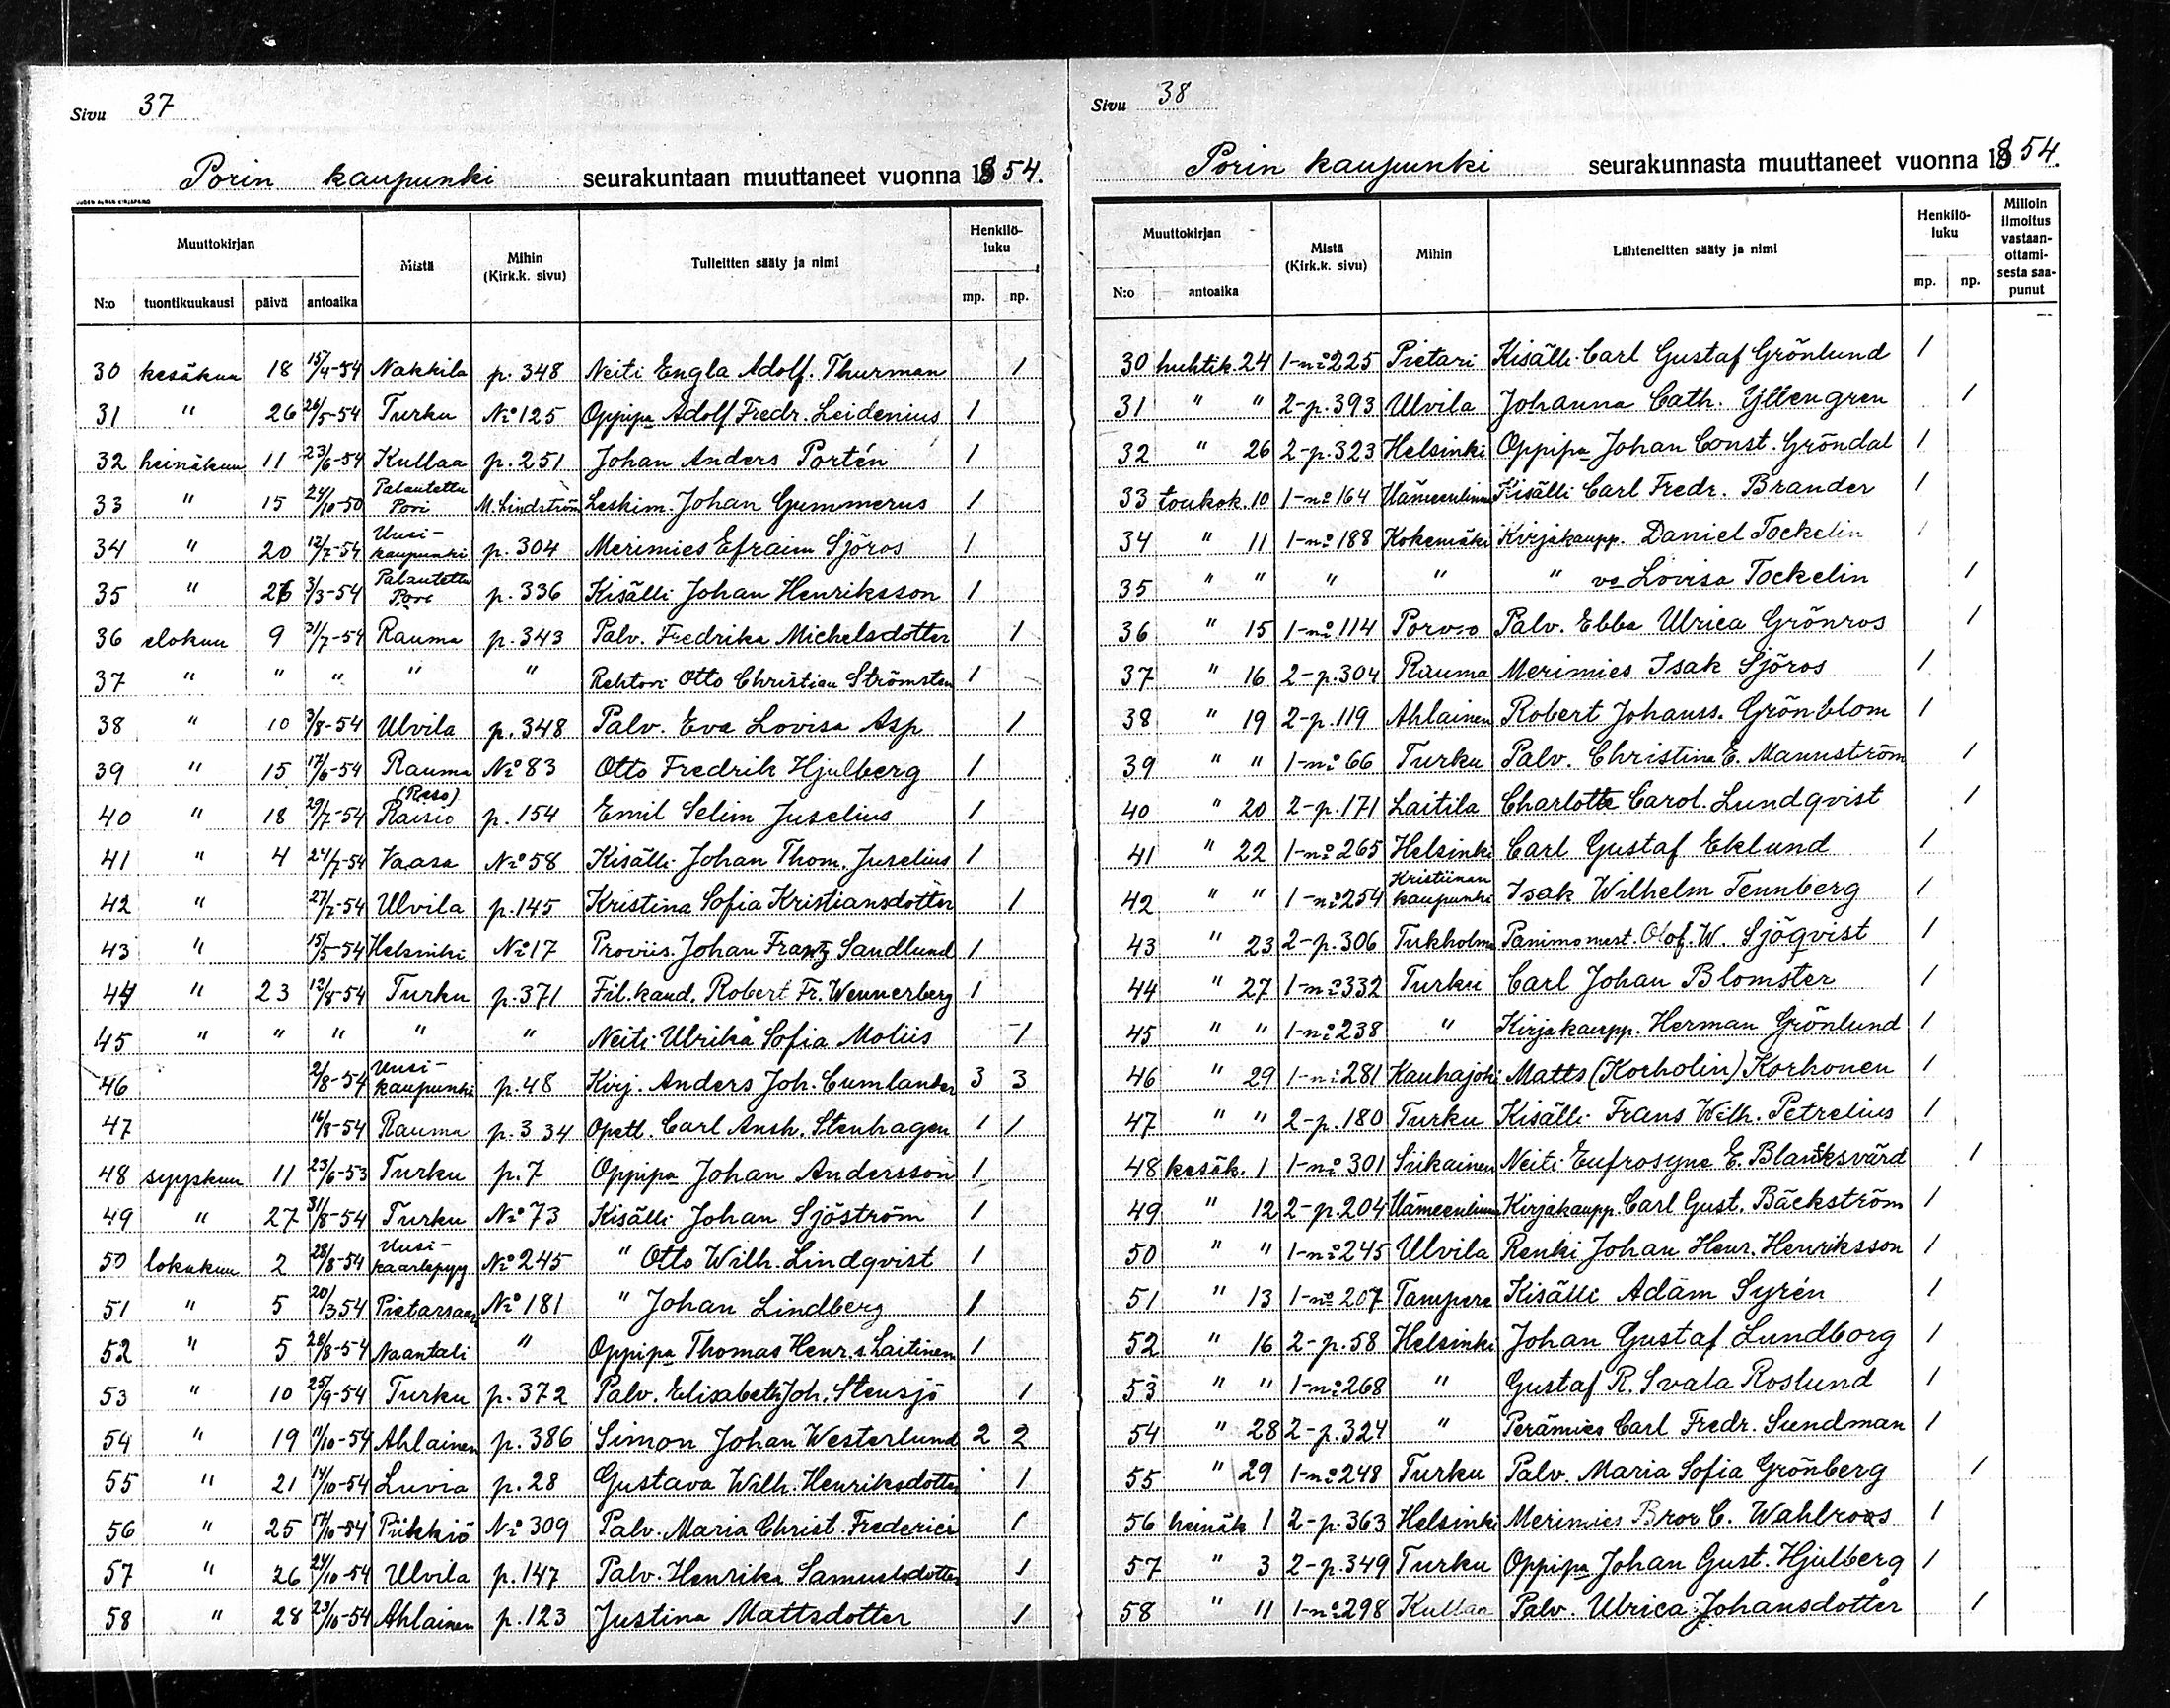 Sivu 37
Porin kaupunki seurakuntaan muuttaneet vuonna 1854.
Muuttokirjan Mistä Mihin (Kirk.k. sivu) Tulleitten sääty ja nimi Henkilöluku
N:o tuontikuukausi päivä antoaika mp. np.
30 kesäkuu 18 15/4-54 Nakkila p. 348 Neiti Engla Adolf. Thurman 1
31 " 26 26/5-54 Turku No 125 Oppipa Adolf Fredr. Leidenius 1
32 heinäkuu 11 23/6-54 Kullaa p. 251 Johan Anders Portén 1
33 " 15 24/10-50 Palautettu Pori M. Lindström Leskim. Johan Gummerus 1
34 " 20 12/7-54 Uusi-kaupunki p. 304 Merimies Efraim Sjöros 1
35 " 26 3/3-54 Palautettu Pori p. 336 Kisälli Johan Henriksson 1
36 elokuu 9 31/7-54 Rauma p. 343 Palv. Fredrika Michelsdotter 1
37 " " " " " Rehtori Otto Christian Strömsten 1
38 " 10 3/8-54 Ulvila p. 348 Palv. Eva Lovisa Asp 1
39 " 15 17/6-54 Rauma No 83 Otto Fredrik Hjulberg 1
40 " 18 29/7-54 (Reso) Raisio p. 154 Emil Selim Juselius 1
41 " 4 24/7-54 Vaasa No 58 Kisälli Johan Thom. Juselius 1
42 " 27/7-54 Ulvila p. 145 Kristina Sofia Kristiansdotter 1
43 " 15/5-54 Helsinki No 17 Proviis. Johan Frantz Sandlund 1
44 " 23 12/8-54 Turku p. 371 Fil. kand. Robert Fr. Wennerberg 1
45 " " " " " Neiti Ulrika Sofia Moliis 1
46 2/8-54 Uusi-kaupunki p. 48 Kirj. Anders Joh. Cumlander 3 3
47 16/8-54 Rauma p. 334 Opetl. Carl Ansh. Stenhagen 1 1
48 syyskuu 11 23/6-53 Turku p. 7 Oppipa Johan Andersson 1
49 " 27 31/8-54 Turku No 73 Kisälli Johan Sjöström 1
50 lokakuu 2 28/8-54 Uusi-kaarlepyy No 245 " Otto Wilh. Lindqvist 1
51 " 5 20/3 54 Pietarsaari No 181 " Johan Lindberg 1
52 " 5 28/8-54 Naantali " Oppipa Thomas Henr. s Laitinen 1
53 " 10 25/9-54 Turku p. 372 Palv. Elisabeth Joh. Stensjö 1
54 " 19 11/10-54 Ahlainen p. 386 Simon Johan Westerlund 2 2
55 " 21 14/10-54 Luvia p. 28 Gustava Wilh. Henriksdotter 1
56 " 25 17/10-54 Piikkiö No 309 Palv. Maria Christ. Frederici 1
57 " 26 24/10-54 Ulvila p. 147 Palv. Henrika Samuelsdotter 1
58 " 28 23/10-54 Ahlainen p. 123 Justina Mattsdotter 1
Sivu 38
Porin kaupunki seurakunnasta muuttaneet vuonna 1854.
Muuttokirjan Mistä (Kirk.k. sivu) Mihin Lähteneitten sääty ja nimi Henkilöluku Milloin ilmoitus vastaanottamisesta saapunut
N:o antoaika mp. np.
30 huhtik. 24 1-no 225 Pietari Kisälli Carl Gustaf Grönlund 1
31 " " 2-p. 393 Ulvila Johanna Cath. Yttengren 1
32 " 26 2-p. 323 Helsinki Oppipa Johan Const. Gröndal 1
33 toukok. 10 1-no 164 Hämeenlinna Kisälli Carl Fredr. Brander 1
34 " 11 1-no 188 Kokemäki Kirjakaupp. Daniel Tockelin 1
35 " " " " " va Lovisa Tockelin 1
36 " 15 1-no 114 Porvoo Palv. Ebba Ulrica Grönros 1
37 " 16 2-p. 304 Rauma Merimies Isak Sjöros 1
38 " 19 2-p. 119 Ahlainen Robert Johanss. Grönblom 1
39 " " 1-no 66 Turku Palv. Christina E. Mannström 1
40 " 20 2-p. 171 Laitila Charlotta Carol. Lundqvist 1
41 " 22 1-no 265 Helsinki Carl Gustaf Eklund 1
42 " " 1-no 254 Kristiinan kaupunki Isak Wilhelm Tennberg 1
43 " 23 2-p. 306 Tukholma Panimomest. Olof. W. Sjöqvist 1
44 " 27 1-no 332 Turku Carl Johan Blomster 1
45 " " 1-no 238 " Kirjakaupp. Herman Grönlund 1
46 " 29 1-no 281 Kauhajoki Matts (Korholin) Korhonen 1
47 " " 2-p. 180 Turku Kisälli Frans Wilh. Petrelius 1
48 kesäk. 1 1-no 301 Siikainen Neiti Eufrosyne E. Blanksvärd 1
49 " 12 2-p. 204 Hämeenlinna Kirjakaupp. Carl Gust. Bäckström 1
50 " " 1-no 245 Ulvila Renki Johan Henr. Henriksson 1
51 " 13 1-no 207 Tampere Kisälli Adam Syrén 1
52 " 16 2-p. 58 Helsinki Johan Gustaf Lundborg 1
53 " " 1-no 268 " Gustaf R. Svala Roslund 1
54 " 28 2-p. 324 " Perämies Carl Fredr. Sundman 1
55 " 29 1-no 248 Turku Palv. Maria Sofia Grönberg 1
56 heinäk 1 2-p. 363 Helsinki Merimies Bror C. Wahlroos 1
57 " 3 2-p. 349 Turku Oppipa Johan Gust. Hjulberg 1
58 " 11 1-no 298 Kullaa Palv. Ulrica Johansdotter 1